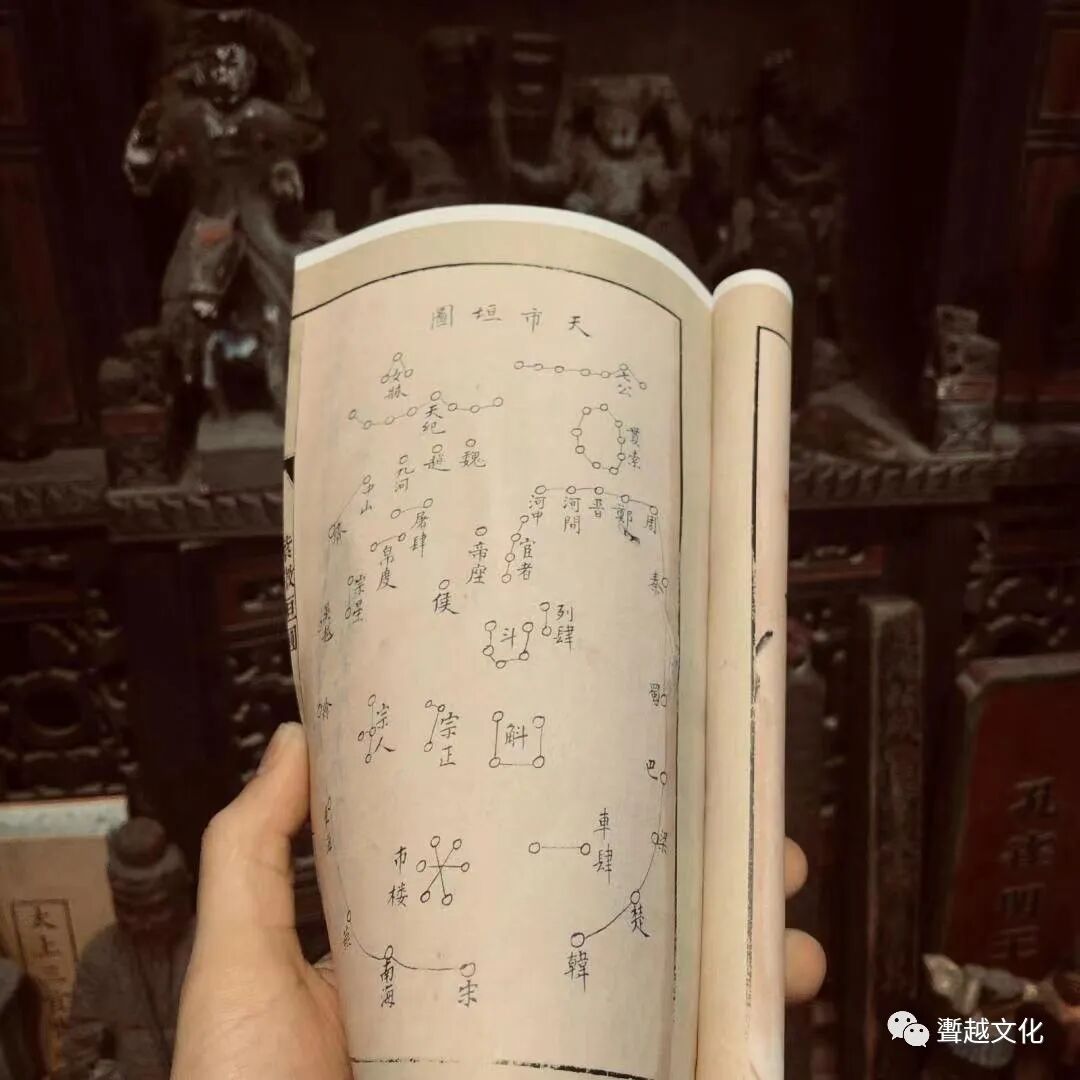 天市垣圖
女牀
七公
天紀
貫索
魏
趙
九河
中山
河中
河間
晋
鄭
周
秦
屠肆
帛度
帝座
宦者
宗星
侯
列肆
斗
蜀
宗人
宗正
斛
巴
梁
市楼
車肆
楚
韓
南海
宋
紫微垣圖
孔雀明王
太上三
蠽越文化